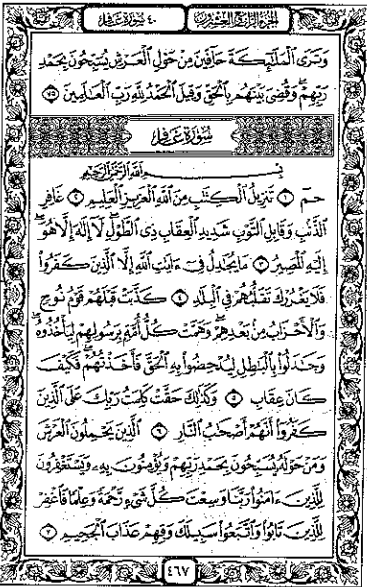 الجزء الرابع والعشرون
٤٠ سورة غافر
وَتَرَى ٱلْمَلَٰٓئِكَةَ حَآفِّينَ مِنْ حَوْلِ ٱلْعَرْشِ يُسَبِّحُونَ بِحَمْدِ
رَبِّهِمْ ۖ وَقُضِىَ بَيْنَهُم بِٱلْحَقِّ وَقِيلَ ٱلْحَمْدُ لِلَّهِ رَبِّ ٱلْعَٰلَمِينَ ٧٥
سُورَةُ غَافِر
بِسْمِ ٱللَّهِ ٱلرَّحْمَٰنِ ٱلرَّحِيمِ
حمٓ ١ تَنزِيلُ ٱلْكِتَٰبِ مِنَ ٱللَّهِ ٱلْعَزِيزِ ٱلْعَلِيمِ ٢ غَافِرِ
ٱلذَّنۢبِ وَقَابِلِ ٱلتَّوْبِ شَدِيدِ ٱلْعِقَابِ ذِى ٱلطَّوْلِ ۖ لَآ إِلَٰهَ إِلَّا هُوَ ۖ
إِلَيْهِ ٱلْمَصِيرُ ٣ مَا يُجَٰدِلُ فِىٓ ءَايَٰتِ ٱللَّهِ إِلَّا ٱلَّذِينَ كَفَرُوا۟
فَلَا يَغْرُرْكَ تَقَلُّبُهُمْ فِى ٱلْبِلَٰدِ ٤ كَذَّبَتْ قَبْلَهُمْ قَوْمُ نُوحٍ
وَٱلْأَحْزَابُ مِنۢ بَعْدِهِمْ ۖ وَهَمَّتْ كُلُّ أُمَّةٍۭ بِرَسُولِهِمْ لِيَأْخُذُوهُ ۖ
وَجَٰدَلُوا۟ بِٱلْبَٰطِلِ لِيُدْحِضُوا۟ بِهِ ٱلْحَقَّ فَأَخَذْتُهُمْ ۖ فَكَيْفَ
كَانَ عِقَابِ ٥ وَكَذَٰلِكَ حَقَّتْ كَلِمَتُ رَبِّكَ عَلَى ٱلَّذِينَ
كَفَرُوٓا۟ أَنَّهُمْ أَصْحَٰبُ ٱلنَّارِ ٦ ٱلَّذِينَ يَحْمِلُونَ ٱلْعَرْشَ
وَمَنْ حَوْلَهُۥ يُسَبِّحُونَ بِحَمْدِ رَبِّهِمْ وَيُؤْمِنُونَ بِهِۦ وَيَسْتَغْفِرُونَ
لِلَّذِينَ ءَامَنُوا۟ رَبَّنَا وَسِعْتَ كُلَّ شَىْءٍ رَّحْمَةً وَعِلْمًا فَٱغْفِرْ
لِلَّذِينَ تَابُوا۟ وَٱتَّبَعُوا۟ سَبِيلَكَ وَقِهِمْ عَذَابَ ٱلْجَحِيمِ ٧
٤٦٧